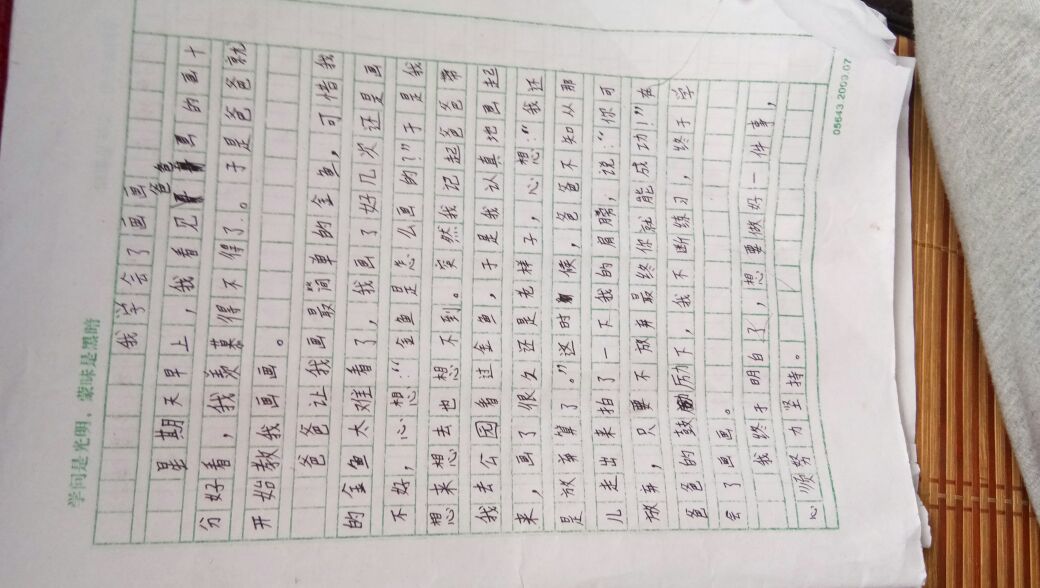 学问是光明，蒙昧是黑暗
我学会了画画
星期天早上，我看见爸爸画的画十
分好看，我羡慕得不得了。于是爸爸就
开始教我画画。
爸爸让我画最简单的金鱼，可惜我
的金鱼太难看了，我画了好几次还是画
不好，心想：“金鱼是怎么画的？”于是我
想来想去也想不到。突然我记起爸爸带
我去公园看过金鱼，于是我认真地画起
来，画了很久还是老样子，心想：“我还
是放弃算了。”这时候，爸爸不知从那
儿走出来拍了一下我的肩膀，说：“你可
放弃，只要不放弃最终你就能成功！”在
爸爸的鼓励下，我不断练习，终于学
会了画画。
我终于明白了，想要做好一件事，
心顺努力坚持。
05643.2009.07